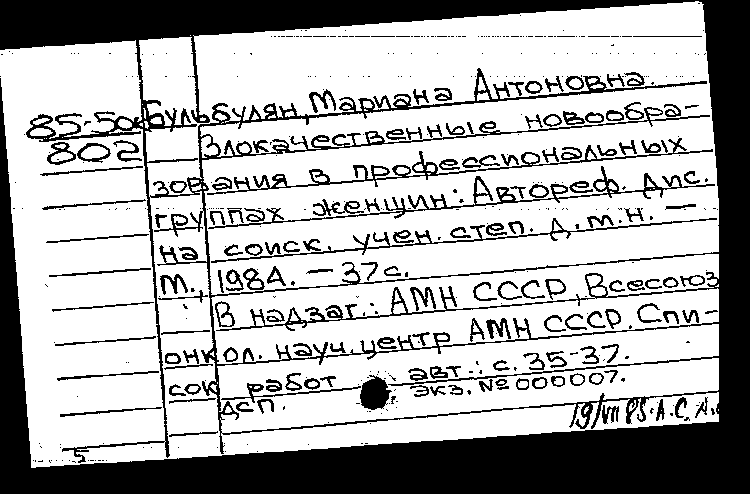 85-50к Бульбулян, Мариана Антоновна.
802 Злокачественные новообра-
зования в профессиональных
группах женщин: Автореф. дис.
на соиск. учен. степ. д.м.н. —
М., 1984. — 37с.
В надзаг.: АМН СССР, Всесоюз
онкол. науч. центр АМН СССР. Спи-
сок работ авт.: с. 35-37.
ДСП. Экз. № 000007.
19/VII 85. А.С.
5